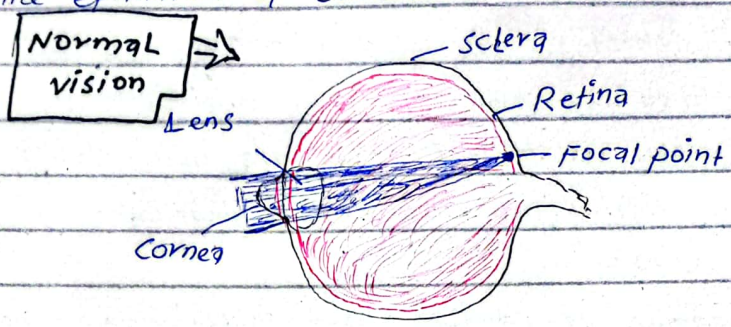 Normal
vision
sclera
Retina
Lens
Focal point
Cornea